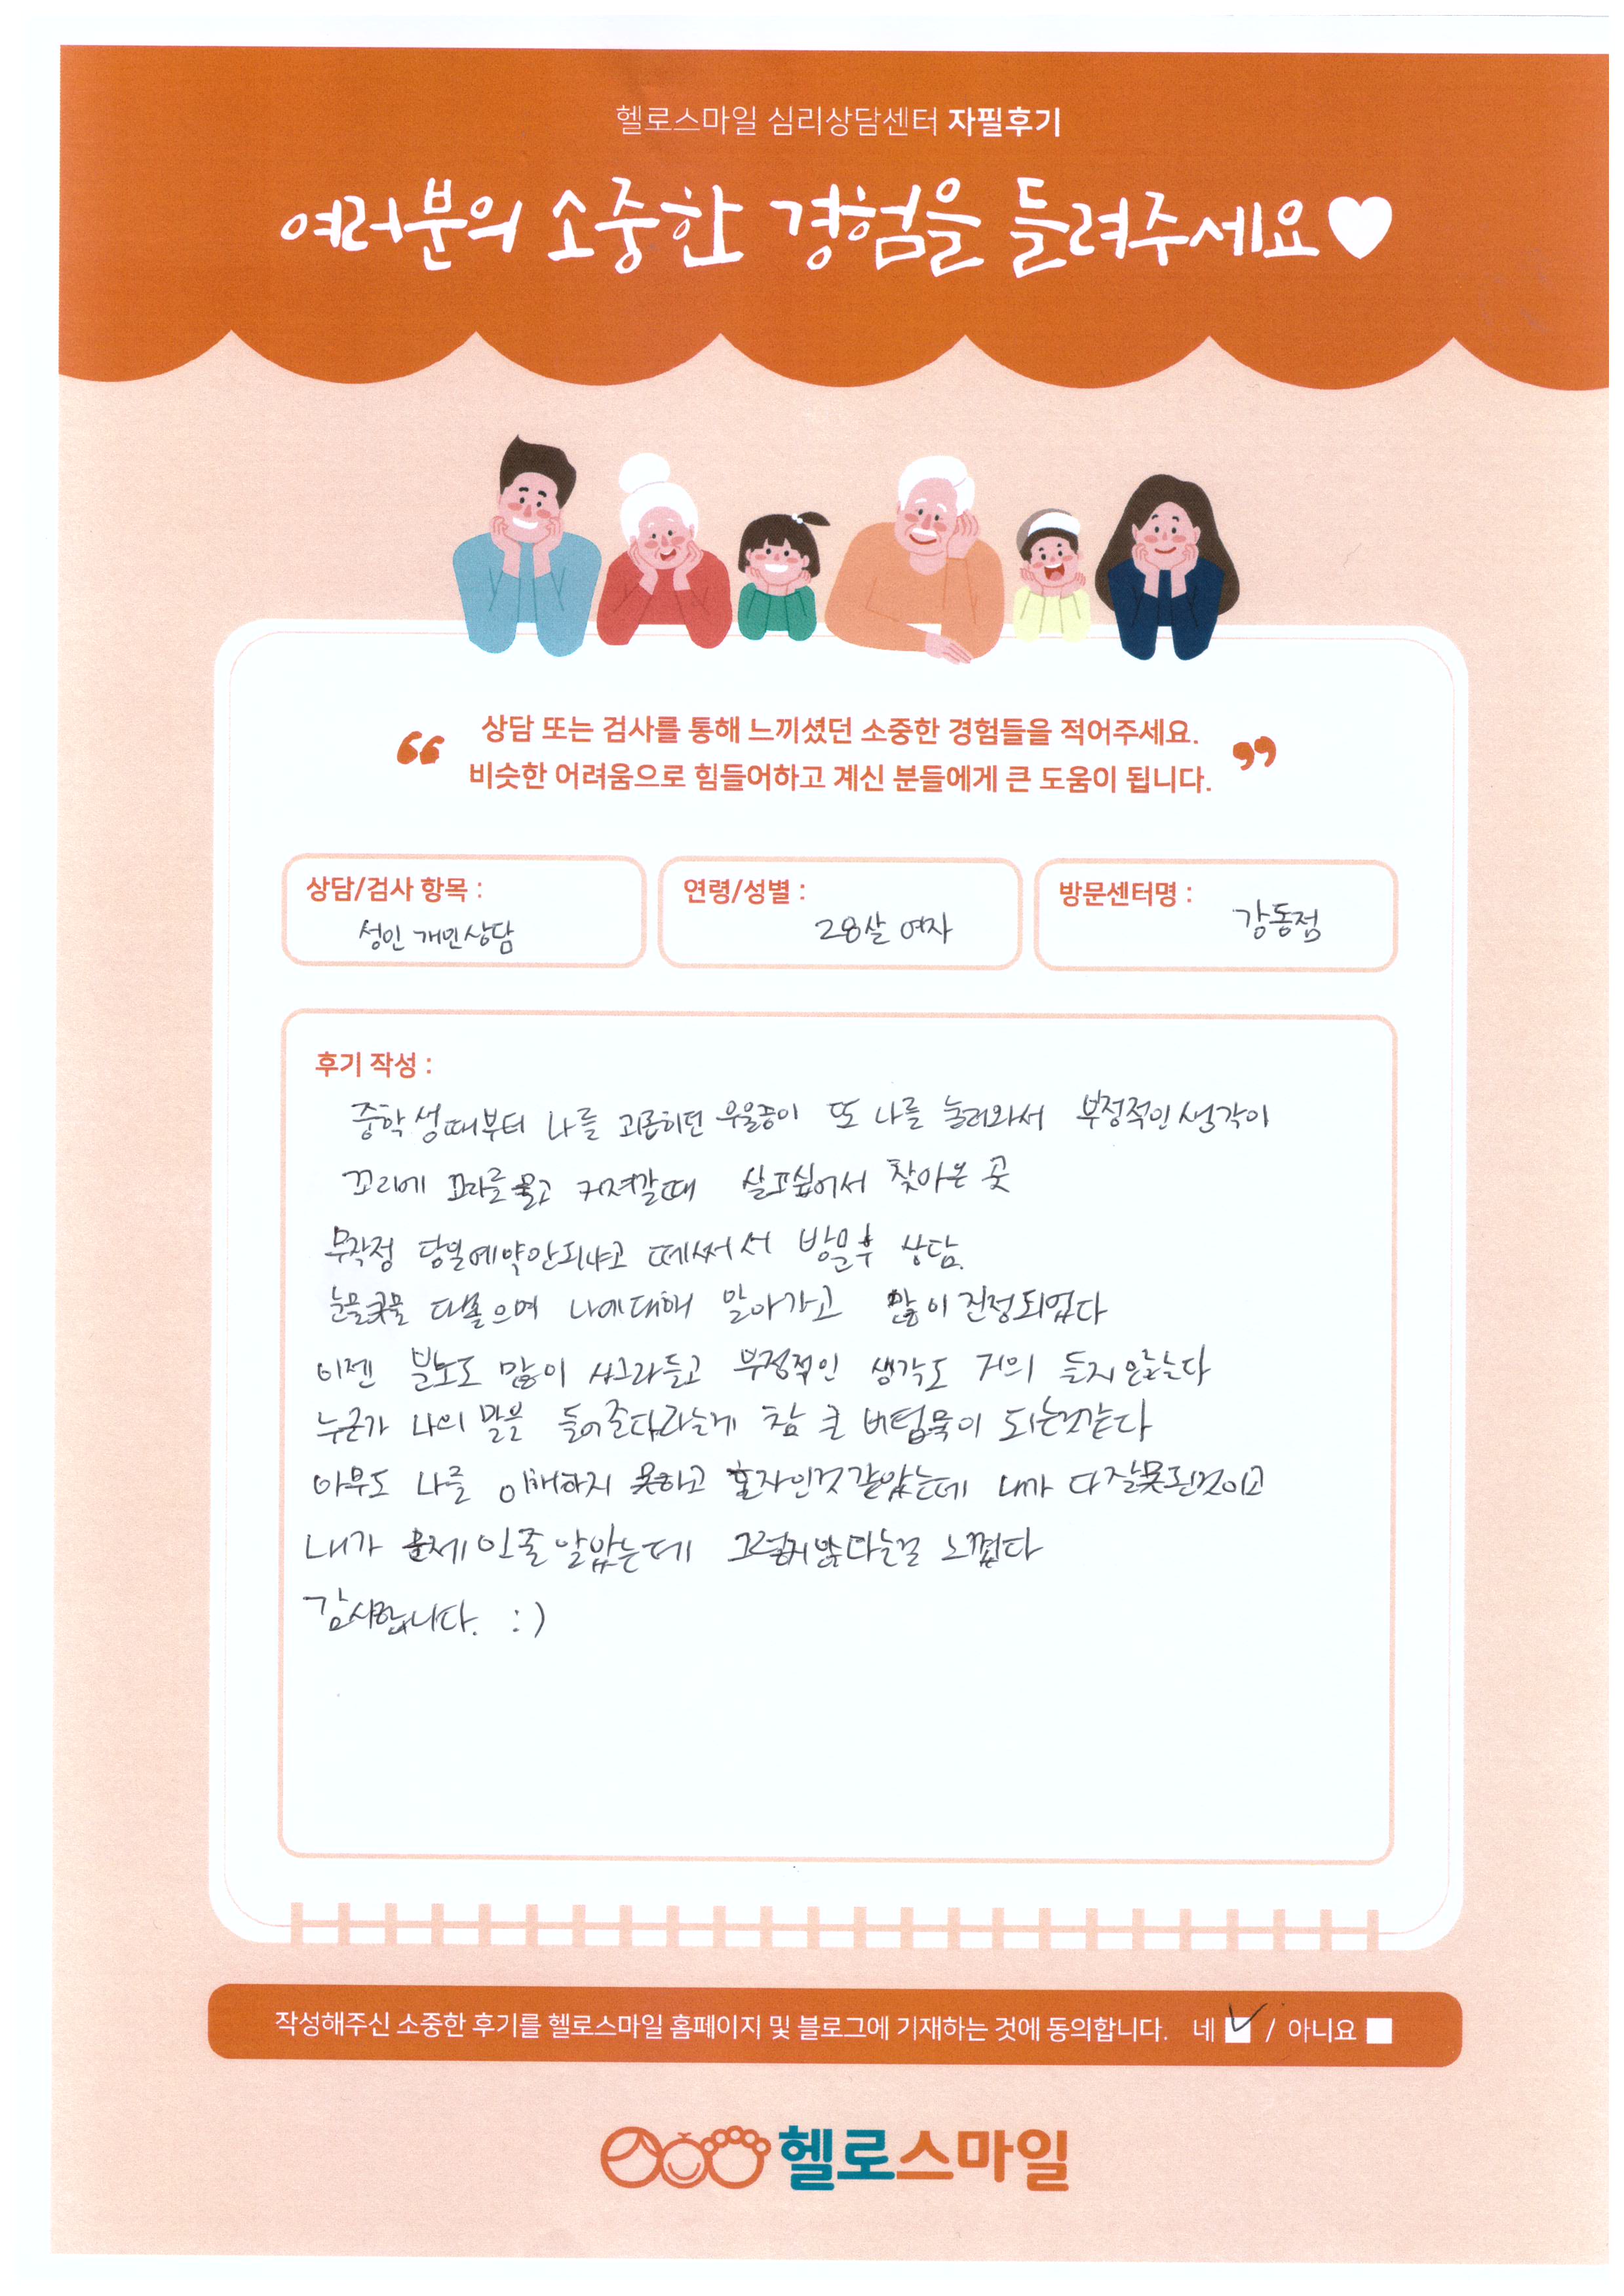 헬로스마일 심리상담센터 자필후기
여러분의 소중한 경험을 들려주세요♥
상담 또는 검사를 통해 느끼셨던 소중한 경험들을 적어주세요.
비슷한 어려움으로 힘들어하고 계신 분들에게 큰 도움이 됩니다.
상담/검사 항목 :
성인 개인상담
연령/성별 :
28살 여자
방문센터명 :
강동점
후기 작성 :
중학생때부터 나를 괴롭히던 우울증이 또 나를 눌러와서 부정적인 생각이
꼬리에 꼬리를 물고 커져갈때 살고싶어서 찾아온 곳
무작정 당일예약안되냐고 떼써서 방문후 상담.
눈물콧물 다쏟으며 나에대해 알아가고 많이 진정되었다
이젠 분노도 많이 사그라들고 부정적인 생각도 거의 들지않는다
누군가 나의 말을 들어준다라는게 참 큰 버팀목이 되는것같다
아무도 나를 이해하지 못하고 혼자인것같았는데 내가 다 잘못된것이고
내가 문제인줄 알았는데 그렇지않다는걸 느꼈다
감사합니다. :)
작성해주신 소중한 후기를 헬로스마일 홈페이지 및 블로그에 기재하는 것에 동의합니다. 네 / 아니요
헬로스마일